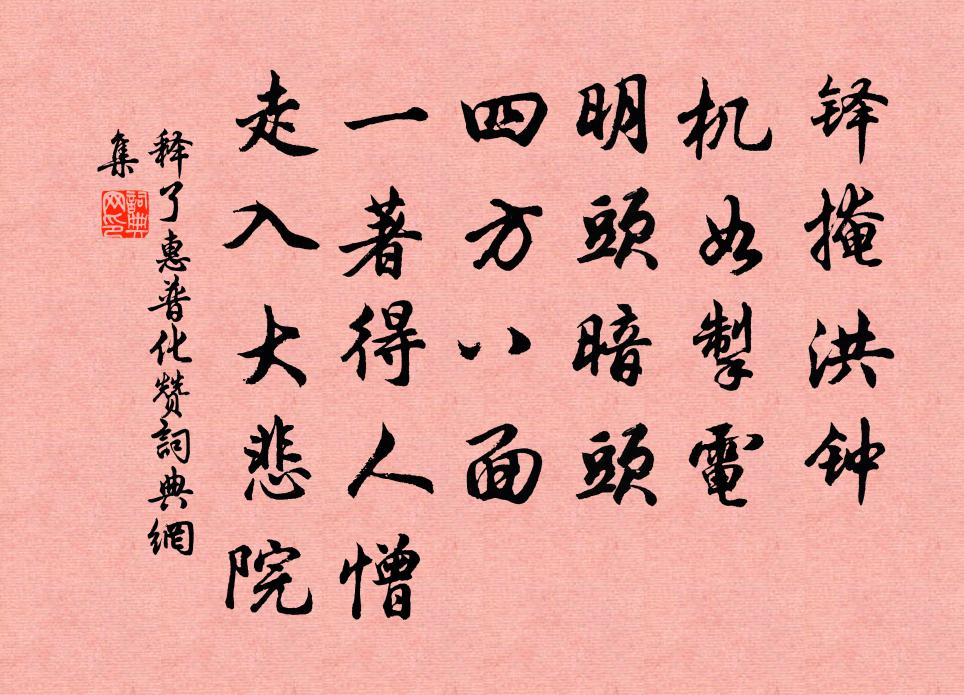 铎掩洪钟
机如掣電
明頭暗頭
四方八面
一著得人憎
走入大悲院
释了惠普化赞詞典網
集
詞典網印